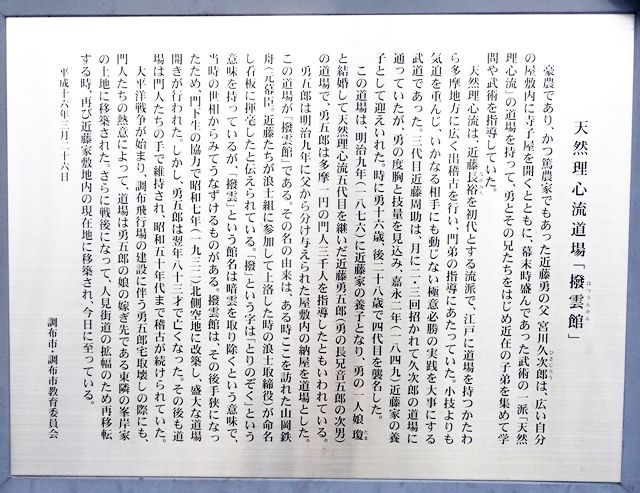 天然理心流道場「撥雲館」
はつうんかん
豪農であり、かつ篤農家でもあった近藤勇の父 宮川久次郎は、広い自分
ひさじろう
の屋敷内に寺子屋を開くとともに、幕末時盛んであった武術の一派「天然
理心流」の道場を持って、勇とその兄たちをはじめ近在の子弟を集めて学
問や武術を指導していた。
天然理心流は、近藤長裕を初代とする流派で、江戸に道場を持つかたわ
ら多摩地方に広く出稽古を行い、門弟の指導にあたっていた。小技よりも
気迫を重んじ、いかなる相手にも動じない極意必勝の実践を大事にする
武道であった。三代目近藤周助は、月に二・三回招かれて久次郎の道場に
通っていたが、勇の度胸と技量を見込み、嘉永二年(一八四九)近藤家の養
子として迎えいれた。時に勇十六歳、後二十八歳で四代目を襲名した。
この道場は、明治九年(一八七六)に近藤家の養子となり、勇の一人娘 瓊
たま
と結婚して天然理心流五代目を継いだ近藤勇五郎(勇の長兄音五郎の次男)
の道場で、勇五郎は多摩一円の門人三千人を指導したともいわれている。
勇五郎は明治九年に父から分け与えられた屋敷内の納屋を道場とした。
この道場が「撥雲館」である。その名の由来は、ある時ここを訪れた山岡鉄
舟(元幕臣。近藤たちが浪士組に参加して上洛した時の浪士取締役)が命名
し看板に揮毫したと伝えられている。「撥」という字は「とりのぞく」という
意味を持っているが、「撥雲」という館名は暗雲を取り除くという意味で、
当時の世相からみてうなずけるものがある。撥雲館は、その後手狭になっ
たため、門下生の協力で昭和七年(一九三二)北側空地に改築し、盛大な道場
開きが行われた。しかし、勇五郎は翌年八十三才で亡くなった。その後も道
場は門人たちの手で維持され、昭和五十年代まで稽古が続けられていた。
太平洋戦争が始まり、調布飛行場の建設に伴う勇五郎宅取壊しの際にも、
門人たちの熱意によって、道場は勇五郎の娘の嫁ぎ先である東隣の峯岸家
の土地に移築された。さらに戦後になって、人見街道の拡幅のため再移転
する時、再び近藤家敷地内の現在地に移築され、今日に至っている。
平成十六年二月二十六日
調布市・調布市教育委員会